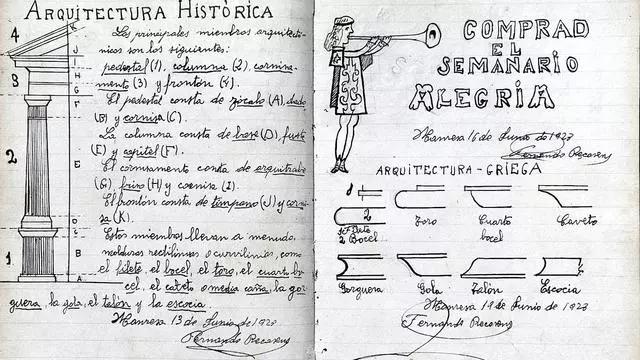 ARQUITECTURA HISTÒRICA
Los principales miembros arquitectó-
nicos son los siguientes:
pedestal (1), columna (2), cornisa-
mento (3) y frontón (4).
El pedestal consta de zócalo (A), dado
(B) y cornisa (C).
La columna consta de base (D), fuste
(E) y capitel (F).
El cornisamento consta de arquitrabe
(G) friso (H) y cornisa (I).
El frontón consta de tímpano (J) y corni-
sa (K).
Estos miembros llevan a menudo,
molduras rectilíneas o curvilíneas, como
el filete, el bocel, el toro, el cuarto bo-
cel, el caveto o media caña, la gor-
guera, la gola, el talón y la escocia
Manresa 13 de Junio de 1923
Fernando Recasens
4
3
2
1
K
J
I
H
G
F
E
D
C
B
A
COMPRAD
EL
SEMANARIO
ALEGRIA
Manresa 16 de Junio de 1923
Fernando Recasens
ARQUITECTURA-GRIEGA
1
2
1 Filete
2 Bocel
Toro
Cuarto
bocel
Caveto
Gorguera
Gola
Talón
Escocia
Manresa 14 de Junio de 1923
Fernando Recasens